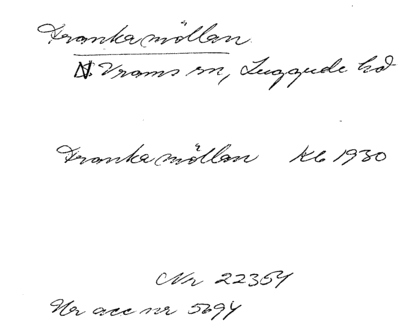 Franka möllan
N. Vrams sn, Luggude hd
Franka möllan Kb 1930
Nr 22354
Ur acc nr 5694